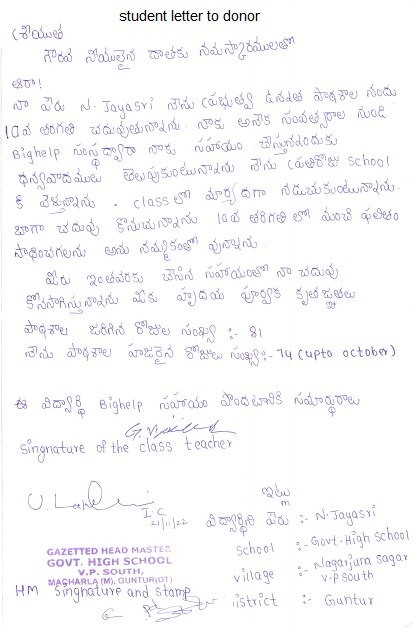 student letter to donor
శ్రీయుత
గౌరవ నీయులైన దాతకు నమస్కారములతో
ఆర్యా!
నా పేరు N. Jayasri నేను ప్రభుత్వ ఉన్నత పాఠశాల నందు
10వ తరగతి చదువుతున్నాను. నాకు అనేక సంవత్సరాల నుండి
Bighelp సంస్థద్వారా నాకు సహాయం చేస్తున్నందుకు
ధన్యవాదములు తెలుపుకుంటున్నాను నేను ప్రతిరోజు school
కి వెళ్తున్నాను. classలో మర్యాదగా నడుచుకుంటున్నాను.
బాగా చదువు కొనుచున్నాను 10వ తరగతి లో మంచి ఫలితం
సాధించగలను అను నమ్మకంతో వున్నాను.
మీరు ఇంతవరకు చేసిన సహాయంతో నా చదువు
కొనసాగిస్తున్నాను మీకు హృదయ పూర్వక కృతజ్ఞతలు
పాఠశాల జరిగిన రోజుల సంఖ్య :- 81
నేను పాఠశాల హాజరైన రోజులు సంఖ్య:- 74 (upto october)
ఈ విద్యార్థి Bighelp సహాయం పొందటానికి సమర్థురాలు
singnature of the class teacher
ఇట్లు
I.C
21/11/22
విద్యార్థిని పేరు :- N. Jayasri
school :- Govt. High school
village :- Nagarjuna sagar
v.p south
District : Guntur
GAZETTED HEAD MASTER
GOVT. HIGH SCHOOL
V.P. SOUTH,
MACHARLA (M), GUNTUR(DT)
HM Singhature and stamp